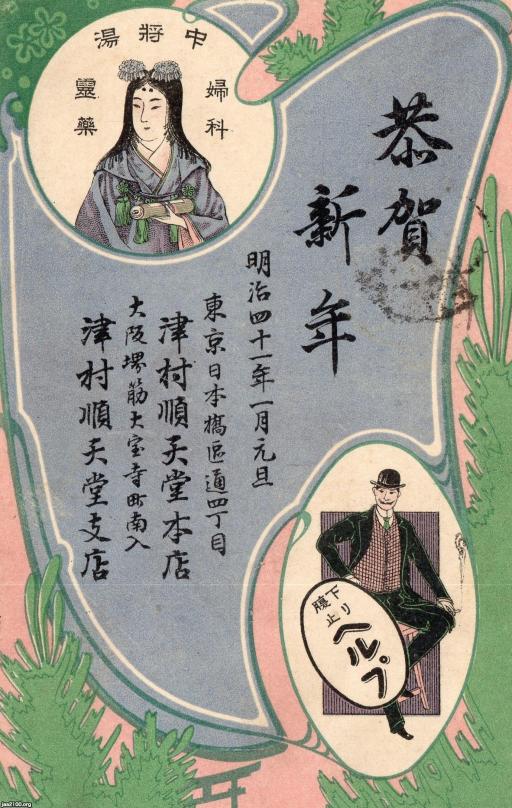 中将湯
婦科
靈藥
恭賀
新年
明治四十一年一月元旦
東京日本橋區通四丁目
津村順天堂本店
大阪堺筋大宝寺町南入
津村順天堂支店
下リ
腹止
ヘルプ
jaa2100.org